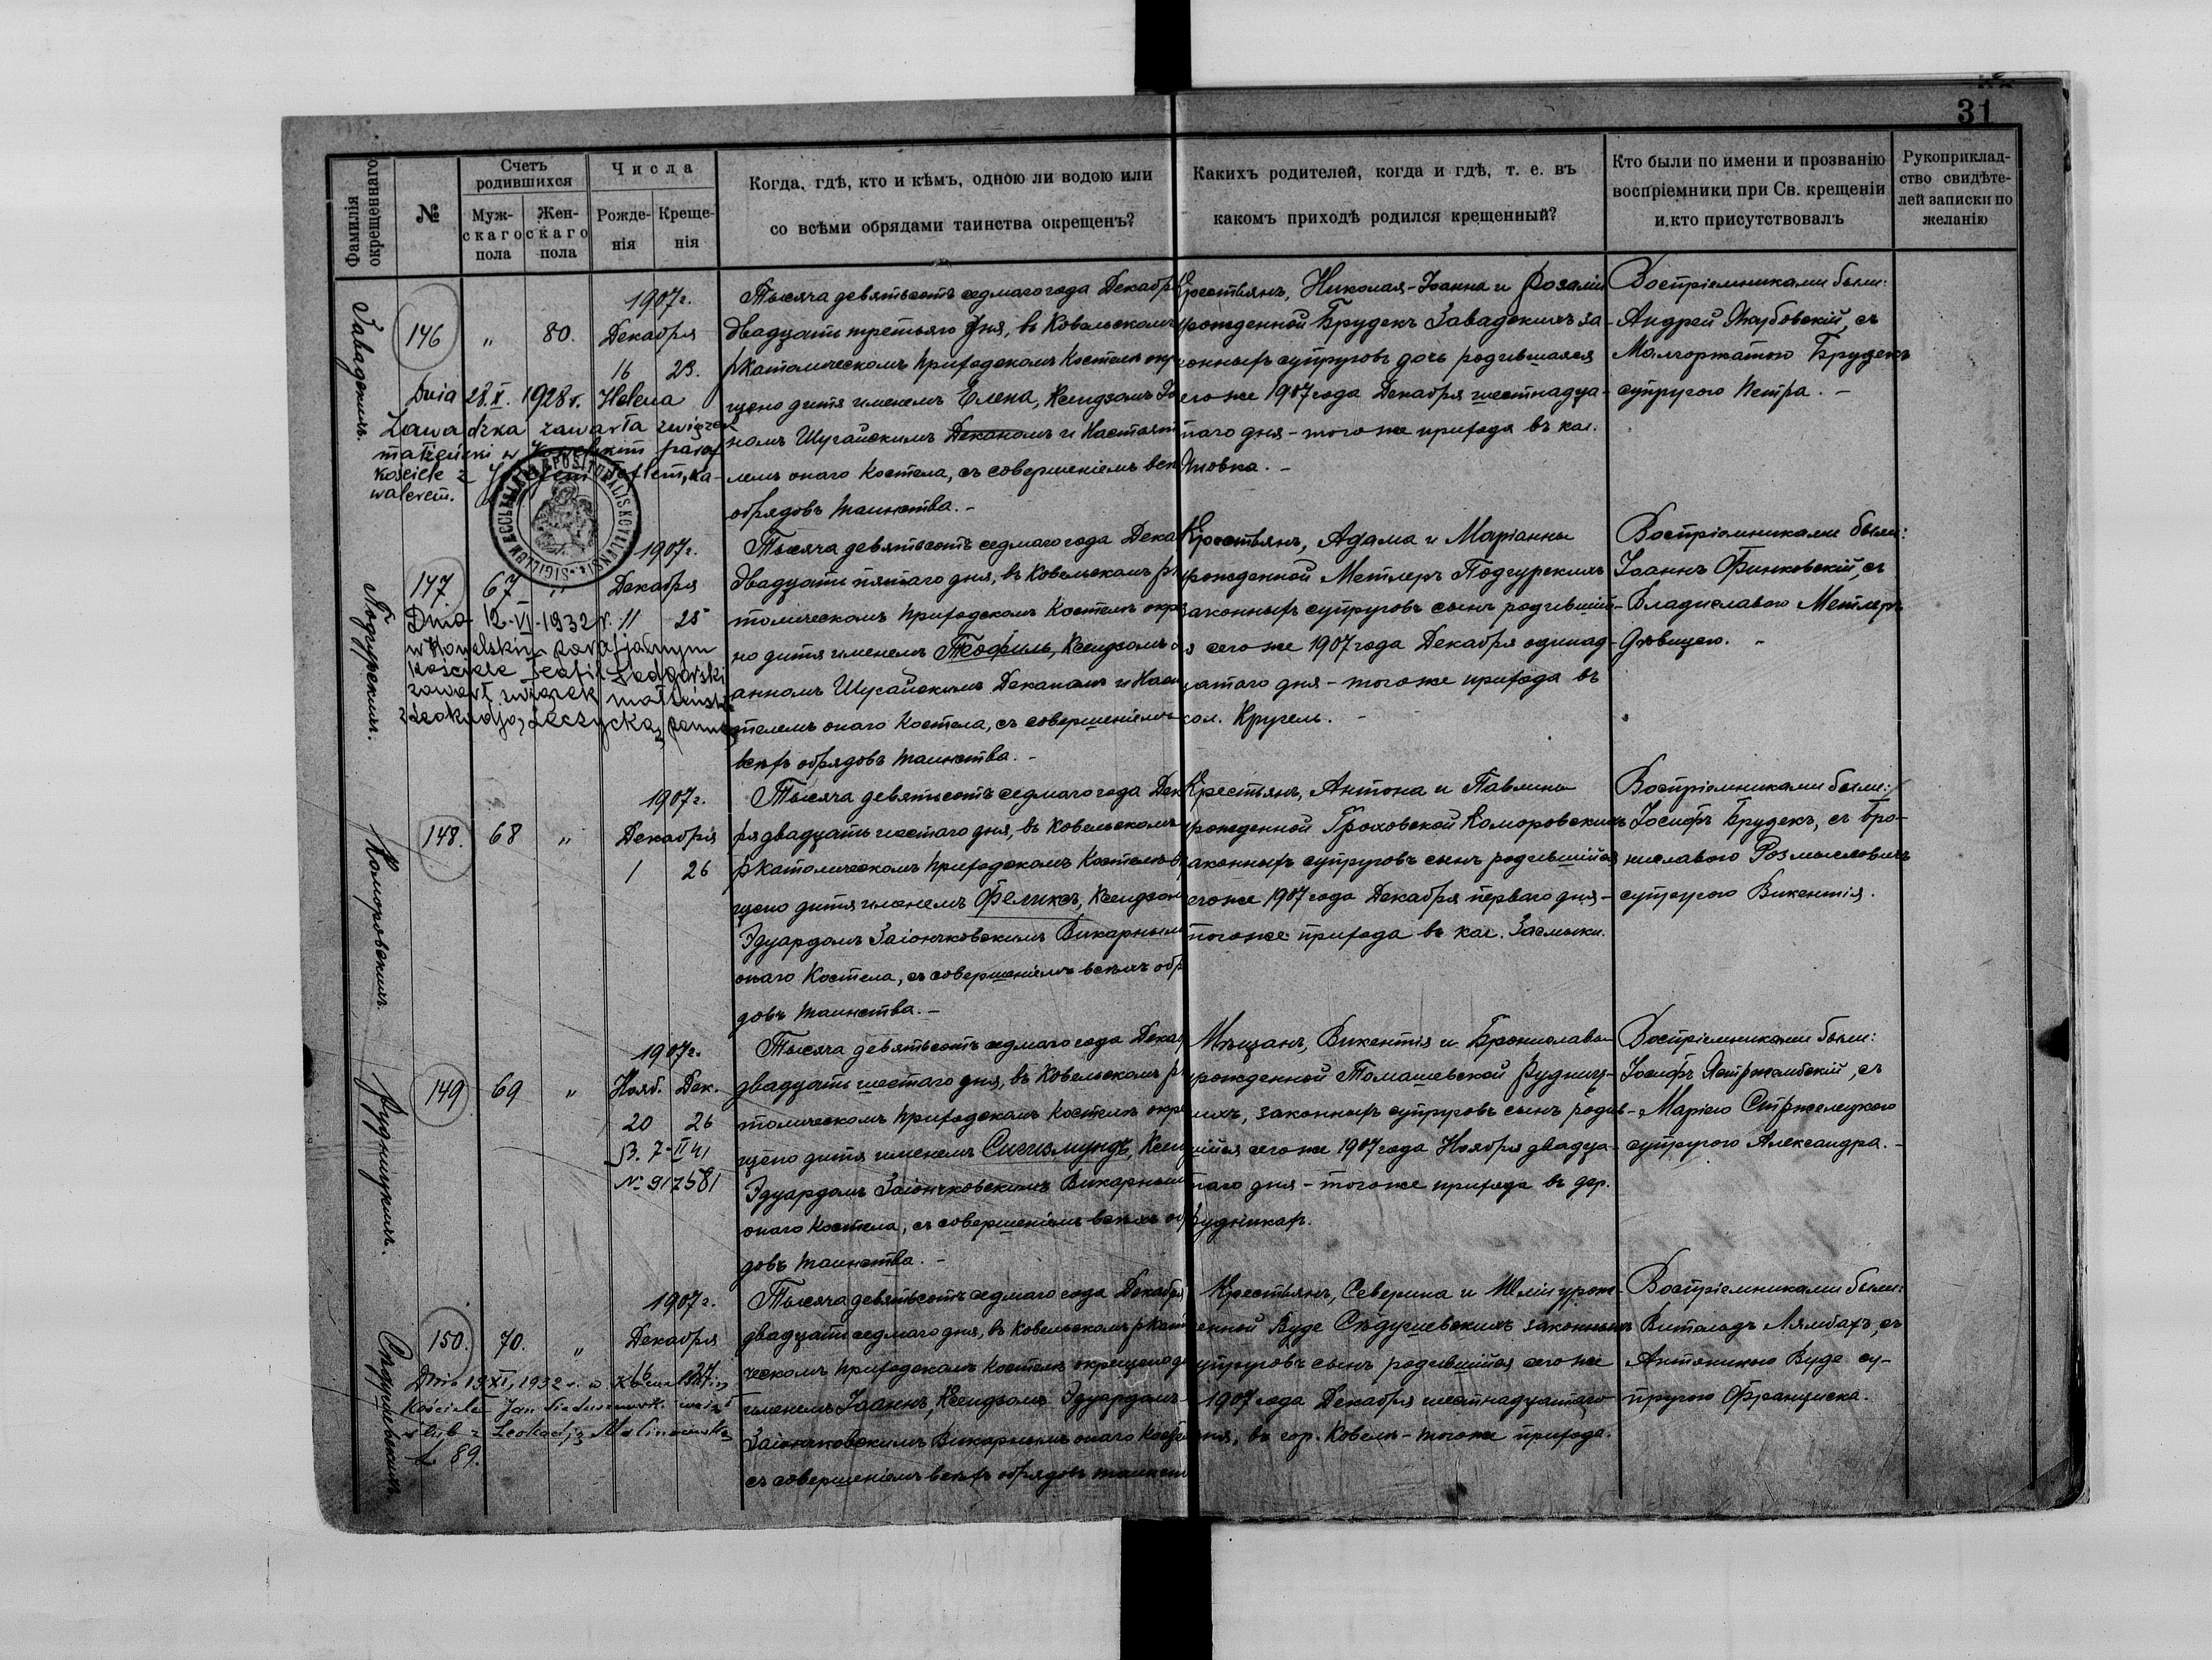 31
Фамилія окрещеннаго
№
Счетъ родившихся
Мужскаго пола
Женскаго пола
Числа
Рожденія
Крещенія
Когда, гдѣ, кто и кѣмъ, одною ли водою или
со всѣми обрядами таинства окрещенъ?
Какихъ родителей, когда и гдѣ, т. е. въ
какомъ приходѣ родился крещенный?
Кто были по имени и прозванію
воспріемники при Св. крещеніи
и кто присутствовалъ
Рукоприклад-
ство свидѣте-
лей записки по
желанію
Завадскихъ.
146
"
80.
1907 г.
Декабря
16 23.
Dnia 28.X. 1928 r. Helena
Zawadzka zawarła związek
małżeński w paraf
kościele z
walerem.
Тысяча девятьсотъ седмаго года Декабр
двадцать третьяго дня, въ Ковельскомъ
рКатолическомъ Приходскомъ Костелѣ окр
щено дитя именемъ Елена, Ксендзомъ
номъ Шугайскимъ Деканомъ и Настоят
лемъ онаго Костела, съ совершеніемъ всѣ
обрядовъ таинства. -
Крестьянъ, Николая-Іоанна и Розаліи
урожденной Брудекъ Завадскихъ за-
конныхъ супруговъ дочь родившаяся
сего же 1907 года Декабря шестнадца-
таго дня - того же прихода въ кол.
Воспріемниками были:
Андрей съ
Малгоржатою Брудекъ
супругою Петра. -
Подгурскихъ.
147
67
"
1907 г.
Декабря
11 25
Dnia 12-VI-1932 r.
w Kowelskim parafjalnym
kościele Teofil Podgórski
zawarł związek małżeński
z Leokadją Łęczycką, panną
Тысяча девятьсотъ седмаго года Дека
двадцать пятаго дня, въ Ковельскомъ р
толическомъ Приходскомъ Костелѣ окр
но дитя именемъ Теофиль, Ксендзомъ
анномъ Шугайскимъ Деканомъ и Нас
телемъ онаго Костела, съ совершеніемъ
всѣхъ обрядовъ таинства. -
Крестьянъ, Адама и Маріанны
урожденной Метлеръ Подгурскихъ
законныхъ супруговъ сынъ родивший-
я сего же 1907 года Декабря одинад-
цатаго дня - того же прихода въ
кол. Кругель. -
Воспріемниками были:
Іоаннъ Финковскій, съ
Владиславою Метлеръ
дѣвицею. -
Коморовскихъ.
148.
68
"
1907 г.
Декабря
1 26
Тысяча девятьсотъ седмаго года Дек
ря двадцать шестаго дня, въ Ковельскомъ
рКатолическомъ Приходскомъ Костелѣ о
щено дитя именемъ Феликсъ, Ксендзом
Эдуардомъ Заіончковскимъ Викарным
онаго Костела, съ совершеніемъ всѣхъ обр
довъ таинства. -
Крестьянъ, Антона и Павлины
урожденной Гроховской Коморовскихъ
законныхъ супруговъ сынъ родившійся
сего же 1907 года Декабря перваго дня -
того же прихода въ кол. Засмыки.
Воспріемниками были:
Іосифъ Брудекъ, съ Бро-
ниславою Розмысловичъ
супругою Викентія.
Рудницкихъ.
149
69
"
1907 г.
Нояб. Дек.
20 26
7-II 41
№ 917581
Тысяча девятьсотъ седмаго года Дека
двадцать шестаго дня, въ Ковельскомъ р
толическомъ Приходскомъ Костелѣ окре
щено дитя именемъ Сигизмундъ, Ксен
Эдуардомъ Заіончковскимъ Викарным
онаго Костела, съ совершеніемъ всѣхъ об
довъ таинства. -
Мѣщанъ, Викентія и Брониславы
урожденной Томашевской Рудниц-
кихъ, законныхъ супруговъ сынъ родив-
шійся сего же 1907 года Ноября двадца-
таго дня - того же прихода въ дер.
Рудниках.
Воспріемниками были:
Іосифъ Ястржембскій, съ
Маріею Стржелецкою
супругою Александра. -
150.
70.
"
1907 г.
Декабря
16 27
Dnia 19 XI, 1932 r. w
Kościele Jan
ślub z Leokadją Malinowską
№ 89.
Тысяча девятьсотъ седмаго года Декабря
двадцать седмаго дня, въ Ковельскомъ рКат
ческомъ Приходскомъ Костелѣ окрещено д
именемъ Іоаннъ, Ксендзомъ Эдуардомъ
Заіончковскимъ Викарнымъ онаго Кост
съ совершеніемъ всѣхъ обрядовъ таинст
Крестьянъ, Северина и Юліи урож-
енной Буде законныхъ
супруговъ сынъ родившійся сего же
1907 года Декабря шестнадцатаго
дня, въ гор. Ковель - того же прихода.
Воспріемниками были:
Витольдъ Лямбахъ, съ
Антониною Буде су-
пругою Франциска.